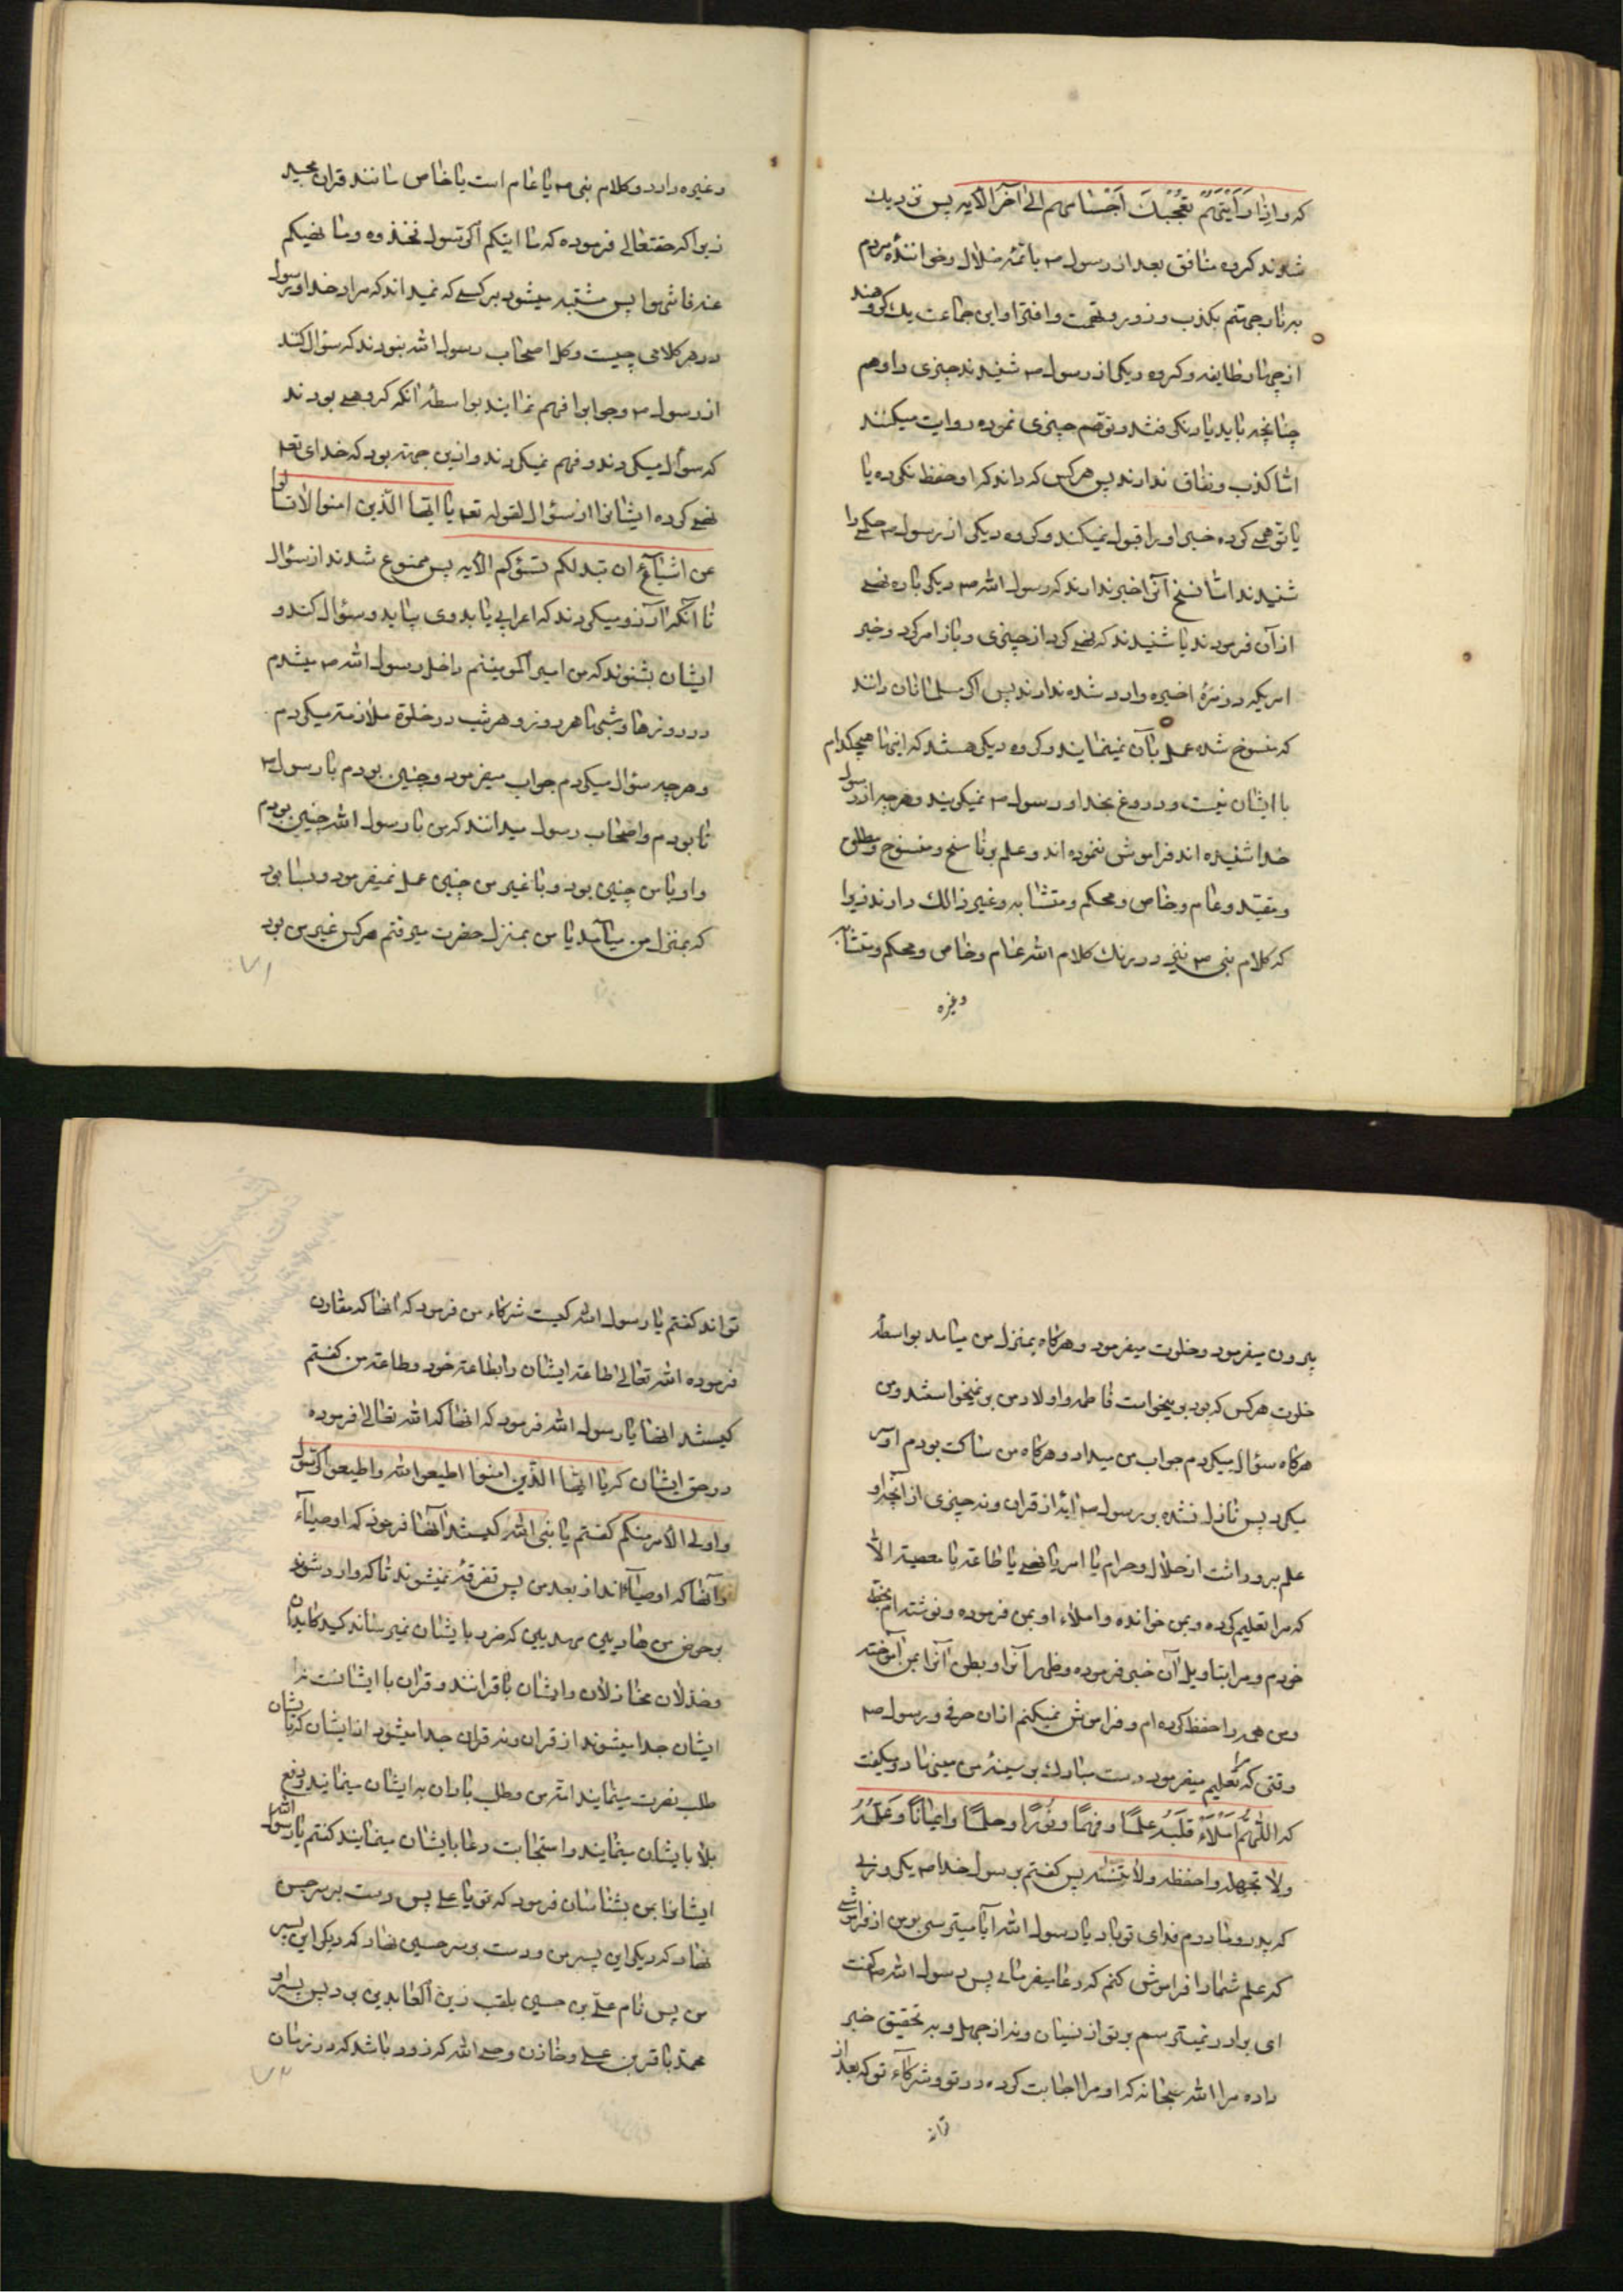 که واذا رَأَیتَهُم تُعجِبُكَ اَجْسٰامهم الی آخر الآیه پس نزدیك
شدند کروه منافق بعد از رسول ص باَئمّهٔ ضلال وخوانندهٔ مردم
بنار جهنّم بکذب وزور وتهمت وافترا واین جماعت یك کروهند
از چهار طایفه وکروه دیکی از رسول ص شنیدند چیزی را وهم
چنانچه باید یاد نکرفتند وتوهّم چیزی نموده روایت میکنند
امّا کذب ونفاق ندارند پس هرکس که داند که او حفظ نکرده یا
یا توهمی کرده خبر او را قبول نمیکند وکروه دیکر از رسول ص حکمی را
شنیدند امّا نسخ آنرا خبر ندارند که رسول الله ص دیکر باره نهی
از آن فرمودند یا شنیدند که نهی کرد از چیزی وباز امر کرد وخبر
امریکه در مرّهٔ اخیره وارد شده ندارند پس اکر مسلمانان دانند
که منسوخ شده عمل بآن نمینمایند وکروه دیکر هستند که اینها هیچکدام
با ایشان نیست ودروغ بخدا ورسول ص نمیکویند وهرچه از رسول
خدا شنیده اند فراموش ننموده اند وعلم بناسخ ومنسوخ ومطلق
ومقیّد وعام وخاص ومحکم ومتشابه وغیر ذالك دارند زیرا
که کلام نبی ص نیز در رنك کلام الله عام وخاص ومحکم ومتشابه
وغیره
وغیره دارد وکلام نبی ص یا عام است یا خاص مانند قران مجید
زیرا که حقتعالی فرموده که ما اتیکم الرّسول فخذوه وما نهیکم
عنه فانتهوا پس مشتبه میشود بر کسی که نمیداند که مراد خدا ورسول
در هر کلامی چیست وکل اصحاب رسول الله نبودند که سؤال کنند
از رسول ص وجواب را فهم نمایند بواسطهٔ آنکه کروهی بودند
که سؤال میکردند وفهم نمیکردند وازین جهته بود که خدای تعـ
نهی کرده ایشانرا از سؤال لقوله تعـ یا ایّها الّذین امنوا لا تسألوا
عن اشیآء ان تبدلکم تسؤکم الآیه پس ممنوع شدند از سؤال
تا آنکه آرزو میکردند که اعرابی یا بدوی بیاید وسؤال کند و
ایشان بشنوند که من امیرالمومنینم داخل رسول الله ص میشدم
در روزها وشبها هر روز وهر شب در خلوة ملازمته میکردم
وهرچه سؤال میکردم جواب میفرمود وچنین بودم با رسول ص
تا بودم واصحاب رسول میدانند که من با رسول الله چنین بودم
واو با من چنین بود وبا غیر من چنین عمل نمیفرمود وبسا بود
که بمنزل من میآمد یا من بمنزل حضرت میرفتم هرکس غیر من بود
۷۱
بیرون میفرمود وخلوت میفرمود وهرکاه بمنزل من میامد بواسطه
خلوت هرکس که بود برمیخواست فاطمه واولاد من برنمیخواستند ومن
هرکاه سؤال میکردم جواب من میداد وهرکاه من ساکت بودم او سر
میکرد پس نازل نشده بر رسول ص آیهٔ از قران ونه چیزی از آنچه او
علم برو داشت از حلال وحرام یا امر یا نهی یا طاعته یا معصیته الّا
که مرا تعلیم کرده وبمن خوانده واملاء او بمن فرموده ونوشته ام بخط
خودم ومرا بتاویل آن خبر فرموده وظهر آنرا وبطن آنرا بمن آموخته
ومن همه را حفظ کرده ام وفراموش نمیکنم از ان حرفی ورسول ص
وقتی که مرا تعلیم میفرمود دست مبارك بر سینهٔ من مینهاد ومیکفت
که اللّهُمَّ اَملاَءْ قَلبَهُ عِلمًا وفهمًا ونُورًا وحلمًا وایمانًا وعَلِّمْهُ
ولا تجهله واحفظه ولا تنسه پس کفتم برسول خدا ص یکروزی
که پدر ومادرم فدای تو باد یا رسول الله آیا میترسی بر من از فراموشی
که علم شما را فراموش کنم که دعا میفرمائی پس رسول الله ص کفت
ای برادر نمیترسم بر تو از نسیان ونه از جهل وبه تحقیق خبر
داده مرا الله سبحانه که او مرا اجابت کرده در تو وشرکآء تو که بعد از
تواند
تواند کفتم یا رسول الله کیست شرکاء من فرمود که انها که مقارن
فرموده الله تعالی اطاعته ایشان را بطاعته خود وطاعته من کفتم
کیستند انها یا رسول الله فرمود که انها که الله تعالی فرموده
در حق ایشان که یا ایّها الّذین امنوا اطیعوا الله واطیعوا الرّسول
واولی الأمر منکم کفتم یا نبی الله کیستند آنها فرمود که اوصیآء
وآنها که اوصیآء اند از بعد من پس تفرقه نمیشوند تا که وارد شوند
بر حوض من هادیین مهدیین که ضرر بایشان نمیرساند کید کایدان
وخذلان خاذلان وایشان با قرانند وقران با ایشانست نه
ایشان جدا میشوند از قران ونه قران جدا میشود از ایشان که بایشان
طلب نصرت مینمایند امّة من وطلب باران به ایشان مینمایند ودفع
بلا بایشان مینمایند واستجابت دعا بایشان مینمایند کفتم یا رسول الله
ایشانرا بمن بشناسان فرمود که تو یا علی پس دست بر سر حسن
نهاد که دیکر این پسر من ودست بر سر حسین نهاد که دیکر این پسر
من پس نام علی بن حسین بلقب زین العابدین برد پس پسر او
محمّد باقر بن علی وخازن وحی الله که زود باشد که در زمان
۷۲